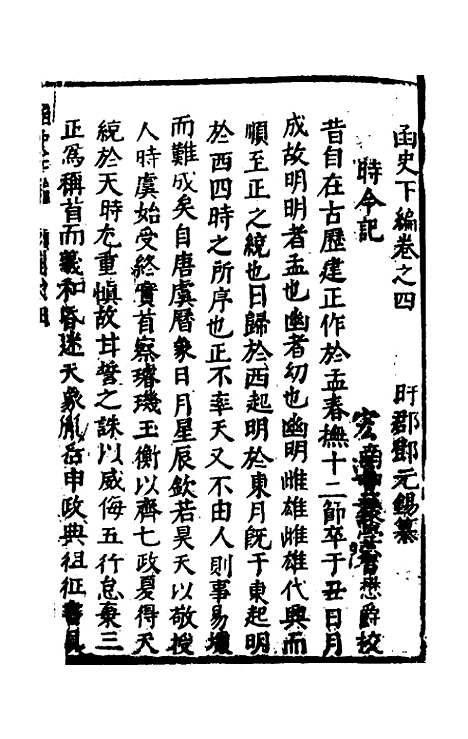 函史下編卷之四　　　盱郡鄧元錫纂
時令記　　　懋爵校
昔自在古歷建正作於孟春撫十二節卒于丑日月
成故明明者孟也幽者幼也幽明雌雄雌雄代興而
順至正之統也日歸於西起明於東月既于東起明
於西四時之所序也正不率天又不由人則事易壞
而難成矣自唐虞曆象日月星辰欽若昊天以敬授
人時虞始受終實首察璿璣玉衡以齊七政夏得天
統於天時尤重慎故甘誓之誅以威侮五行怠棄三
正為稱首而羲和昏迷天象胤后申政典徂征書具